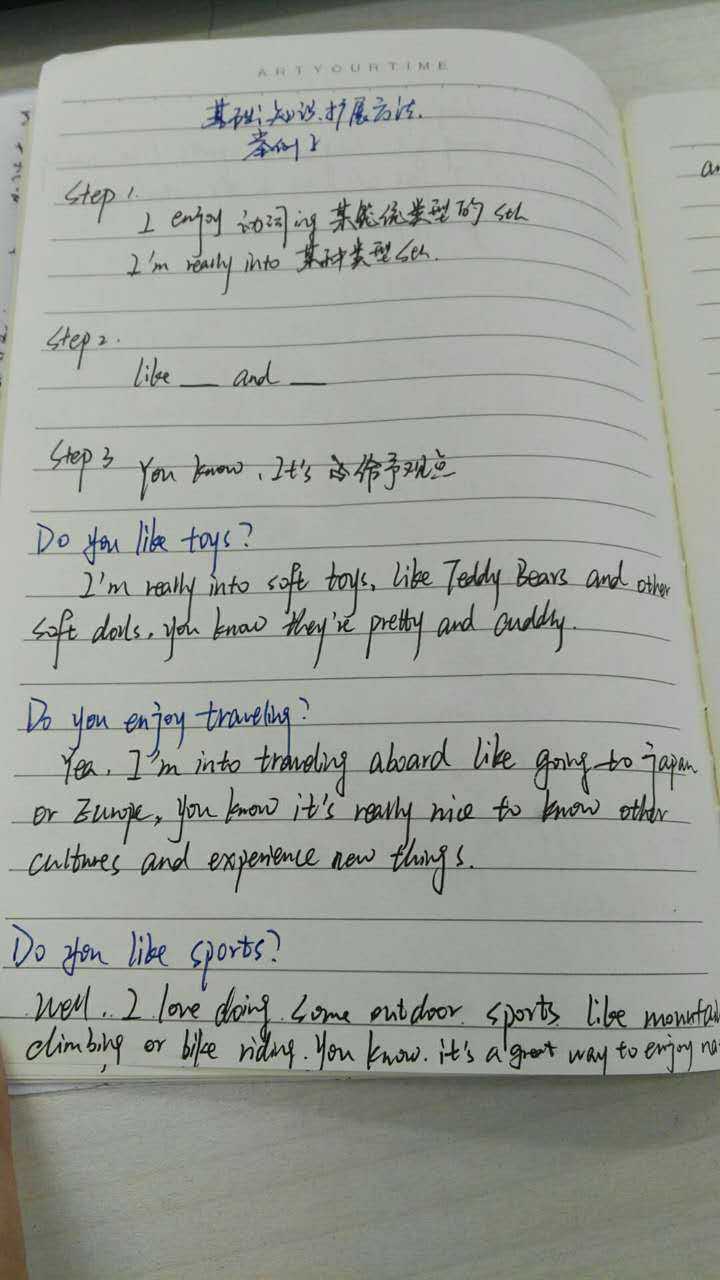 ARTYOURTIME
基础知识扩展方法.
举例
Step 1.
I enjoy 动词ing 某 类型的 sth
I'm really into 某种类型 sth.
Step 2.
like __ and __
Step 3 You know, It's 给予观点
Do you like toys?
I'm really into soft toys, like Teddy Bears and other
soft dolls, you know they're pretty and cuddly.
Do you enjoy traveling?
Yea, I'm into traveling aboard like going to japan
or Europe, you know it's really nice to know other
cultures and experience new things.
Do you like sports?
Well.. I love doing some outdoor sports like mountai
climbing or bike riding. You know. it's a great way to enjoy na